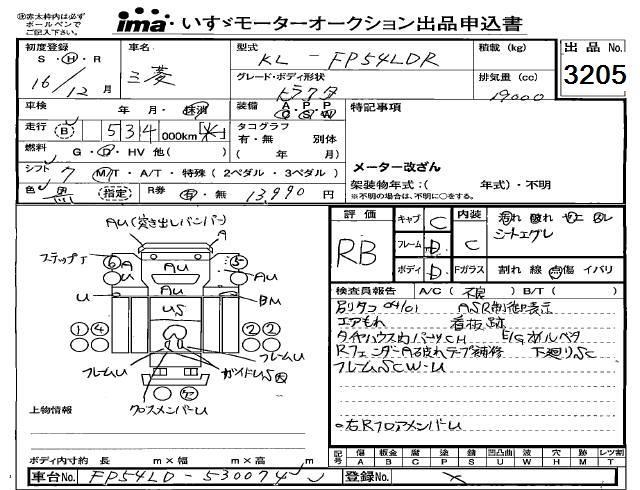 ㊟赤太枠内は必ず
ボールペンで
ご記入下さい。
ima いすゞモーターオークション出品申込書
初度登録 車名 型式 積載 (kg) 出品 No.
S・H・R 三菱 KL - FP54LDR
16/12 月
グレード・ボディ形状 排気量 (cc) 3205
トラクタ 19000
車検 年 月・抹消 装備 A・P・P C・S・W 特記事項
走行 B 534 000km 米 タコグラフ
有・無 別体
燃料 G・D・HV 他( ) ( 年 月) メーター改ざん
シフト 7 M/T・A/T・特殊 ( 2ペダル・3ペダル )
架装物年式:( 年式)・不明
※不明の場合は、不明に○をする。
色 黒 指定 R券 有・無 13,990 円
AU(突き出しバンパー)
A
フェテップT ⑥ A AU ⑤ AU
U AU BM
US
① ④ ② ②
フレームU フレームU
ガイドUS大
ア
クロスメンバーU
上物情報
評価 RB
キャブ C 内装 汚れ 破れ ヤニ ムレ
フレーム D C シートエグレ
ボディ D Fガラス 割れ 線 点傷 イバリ
検査員報告 A/C ( 不良 ) B/T ( )
別タコ 04/01 ASR制御表示
エアもれ 看板跡
タイヤハウス内パーツCH E/Gオルペタ
Rフェンダー A破れテープ補修 下廻りSC
フレームSCW-U
○右RフロアメンバーU
ボディ内寸約 長 m×幅 m×高 m
記号 傷 板金 腐 塗 錆 凹凸曲 波 穴 跡 レツ割
A B C P S U W H M T
車台No. FP54LD-530074 登録No.